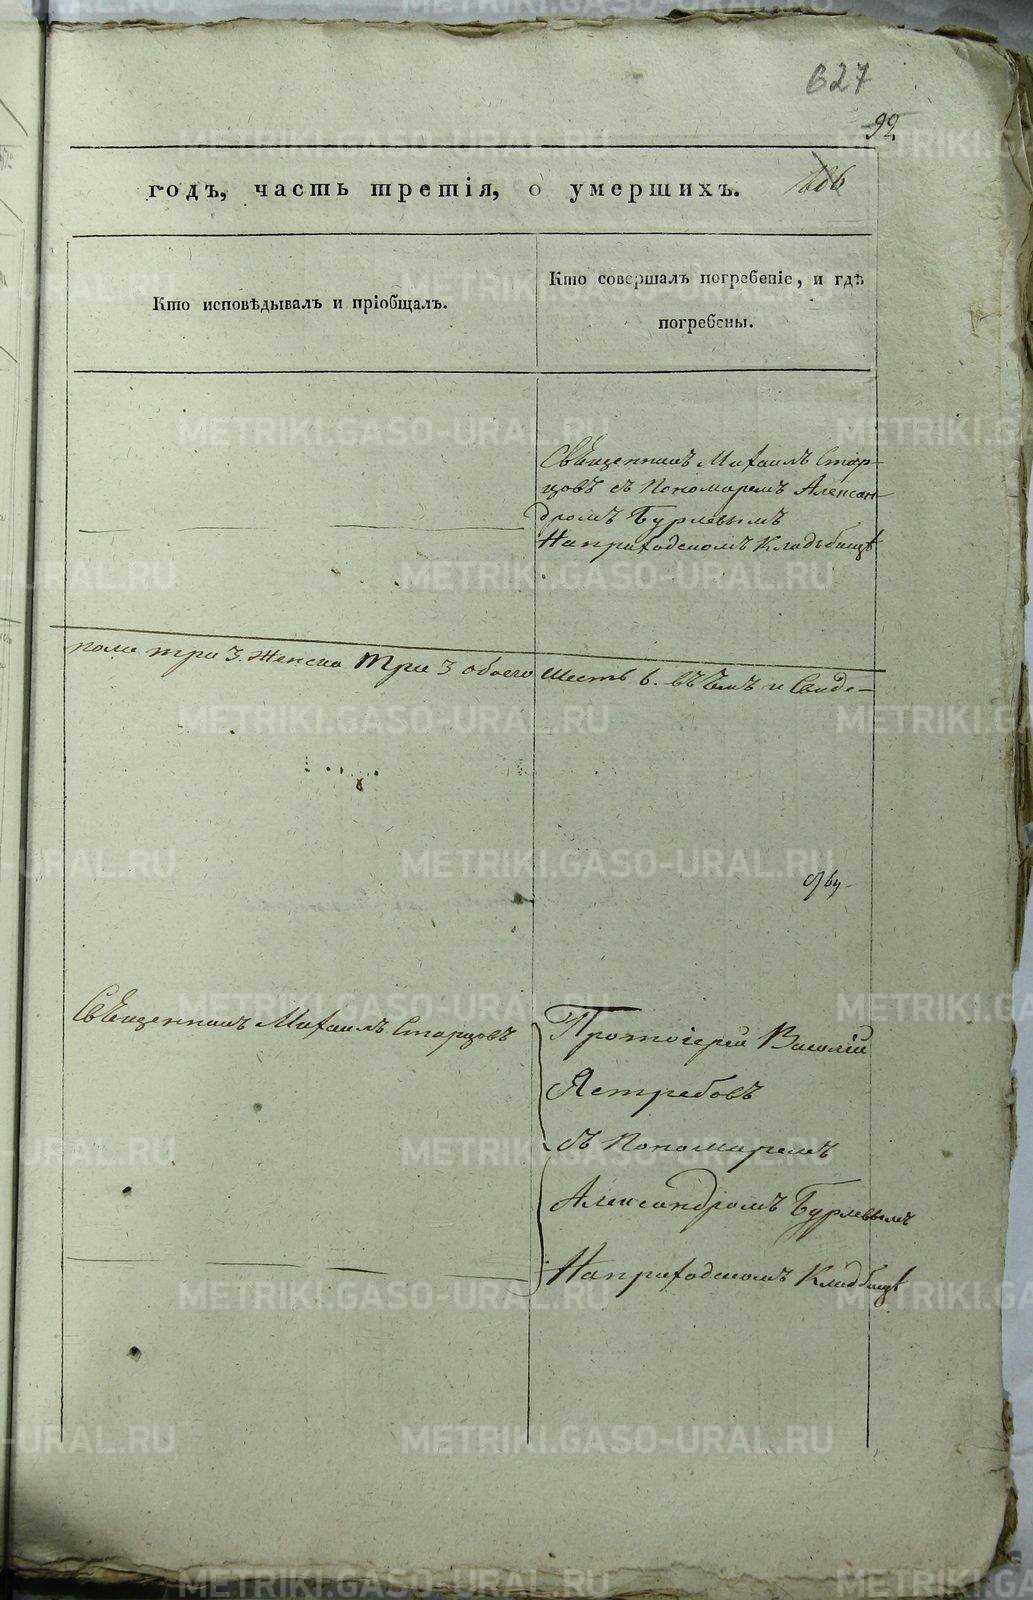 627
92
106
годъ, часть третія, о умершихъ.
Кто исповѣдывалъ и пріобщалъ.
Кто совершалъ погребеніе, и гдѣ
погребены.
Священникъ Михаилъ Стар-
цовъ съ Пономаремъ Алексан-
дромъ Бурлевымъ
На приходскомъ Кладьбищѣ
пола три 3. Женска Три 3 обоего Шесть 6. въ чемъ и Свиде-
Священникъ Михаилъ Старцовъ
Протоіерей Василій
Ястребовъ
съ Пономаремъ
Александромъ Бурлевымъ
На приходскомъ Кладбищѣ
METRIKI.GASO-URAL.RU